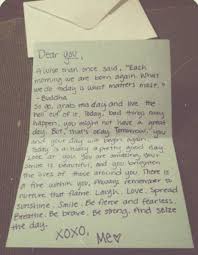 Dear you,
A wise man once said, "Each
morning we are born again. What
we do today is what matters most."
- Buddha
So go, grab ma day and live the
hell out of it. Today, bad things may
happen, you might not have a great
day. But, that's okay. Tomorrow, you
and your day will begin again.
Today is actually a pretty good day.
Look at you! You are amazing, your
smile is beautiful, and you brighten
the lives of those around you. There is
a fire within you, Always remember to
nurture that flame. Laugh. Love. Spread
sunshine. Smile. Be fierce and fearless.
Breathe. Be brave. Be strong. And seize
the day.
XOXO,
Me♡